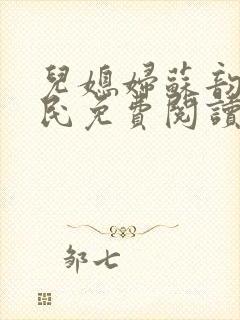 兒媳婦蘇韵
民免費閱讀
鄒七